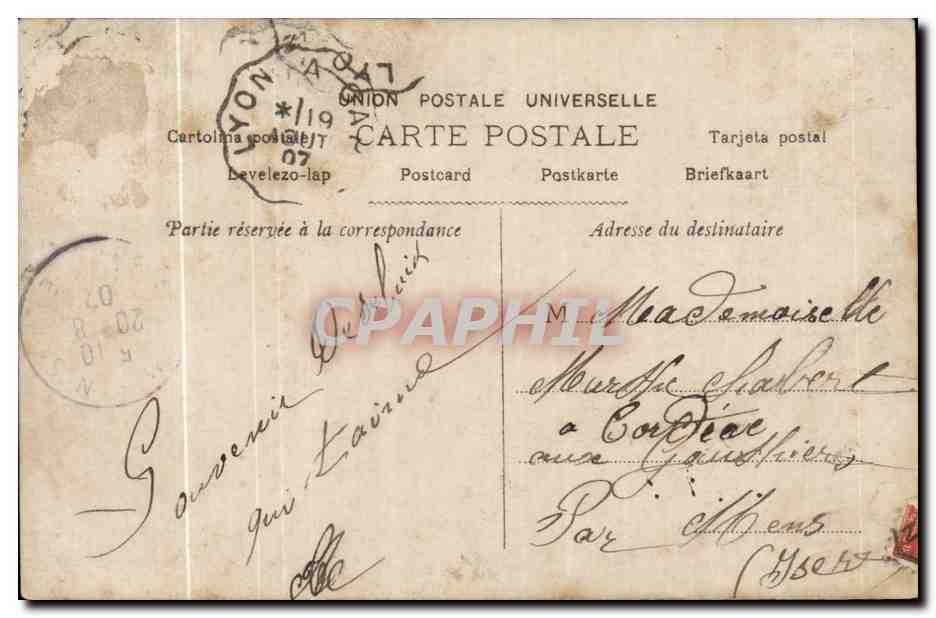 UNION POSTALE UNIVERSELLE
Cartolina postale CARTE POSTALE Tarjeta postal
Levelezo-lap Postcard Postkarte Briefkaart
LYON
*/19
AOUT
07
20 8
07
Partie réservée à la correspondance
Souvenir de celui
qui t'aime
Adresse du destinataire
M Mademoiselle
Marthe
a Cordéac
aux Gauthiers
Par Mens
(Isère)
CPAPHIL